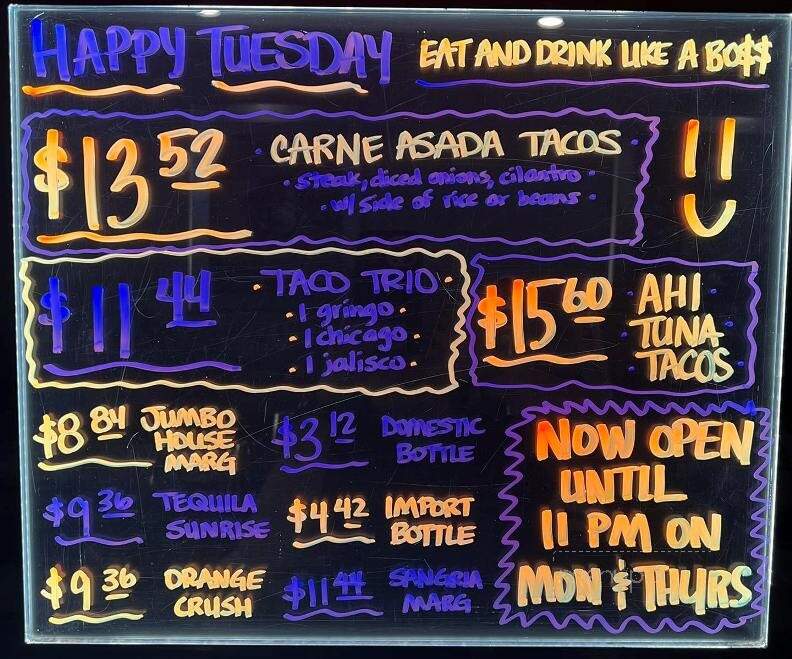 HAPPY TUESDAY EAT AND DRINK LIKE A BO$$
$13 52 · CARNE ASADA TACOS ·
· steak, diced onions, cilantro ·
· w/ side of rice or beans ·
$11 44 · TACO TRIO ·
· 1 gringo ·
· 1 chicago ·
· 1 jalisco ·
$15 60 · AHI ·
· TUNA ·
· TACOS ·
$8 84 JUMBO
HOUSE
MARG
$3 12 DOMESTIC
BOTTLE
$9 36 TEQUILA
SUNRISE
$4 42 IMPORT
BOTTLE
$9 36 ORANGE
CRUSH
$11 44 SANGRIA
MARG
NOW OPEN
UNTIL
11 PM ON
MON & THURS